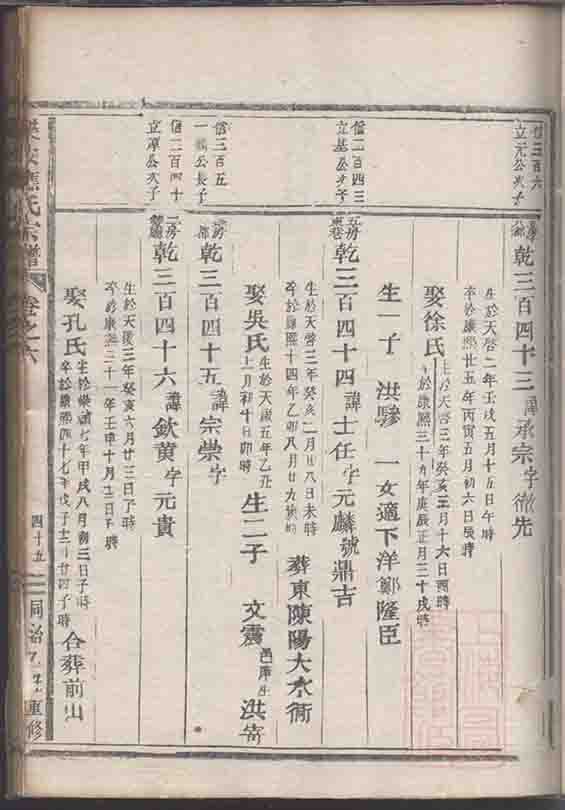 信三百六
立元公次子
乾三百四十三諱承宗字徹先
生於天啓二年壬戌五月十五日午時
卒於康熙廿五年丙寅五月初六日辰時
娶徐氏
生於天啓三年癸亥三月十六日酉時
卒於康熙三十九年庚辰正月三十戌時
生一子 洪驂 一女適下洋鄭隆臣
信二百四三
立基公次子
五房
東巷
乾三百四十四諱士任字元麟號鼎吉
生於天啓三年癸亥二月廿八日未時
卒於康熙十四年乙卯八月廿九
葬東陳陽大水衕
娶吳氏
生於天啟五年乙丑
十一月初十日卯時
生二子 文震
邑庠生
洪寄
信三百五
一鶴公長子
乾三百四十五諱宗崇字
信二百四十
立準公次子
乾三百四十六諱欽黄字元貴
生於天啟三年癸亥六月廿三日子時
卒於康熙三十一年壬申十月十三日子時
娶孔氏
生於崇禎七年甲戌八月初三日子時
卒於康熙四十七年戊子十二月廿四子時
合葬前山
氏宗譜
卷之六
四十五
同治
重修